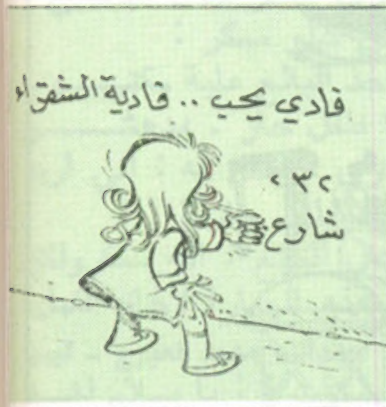 فادي يحب .. فادية الشقراء
٢٣٢
شارع